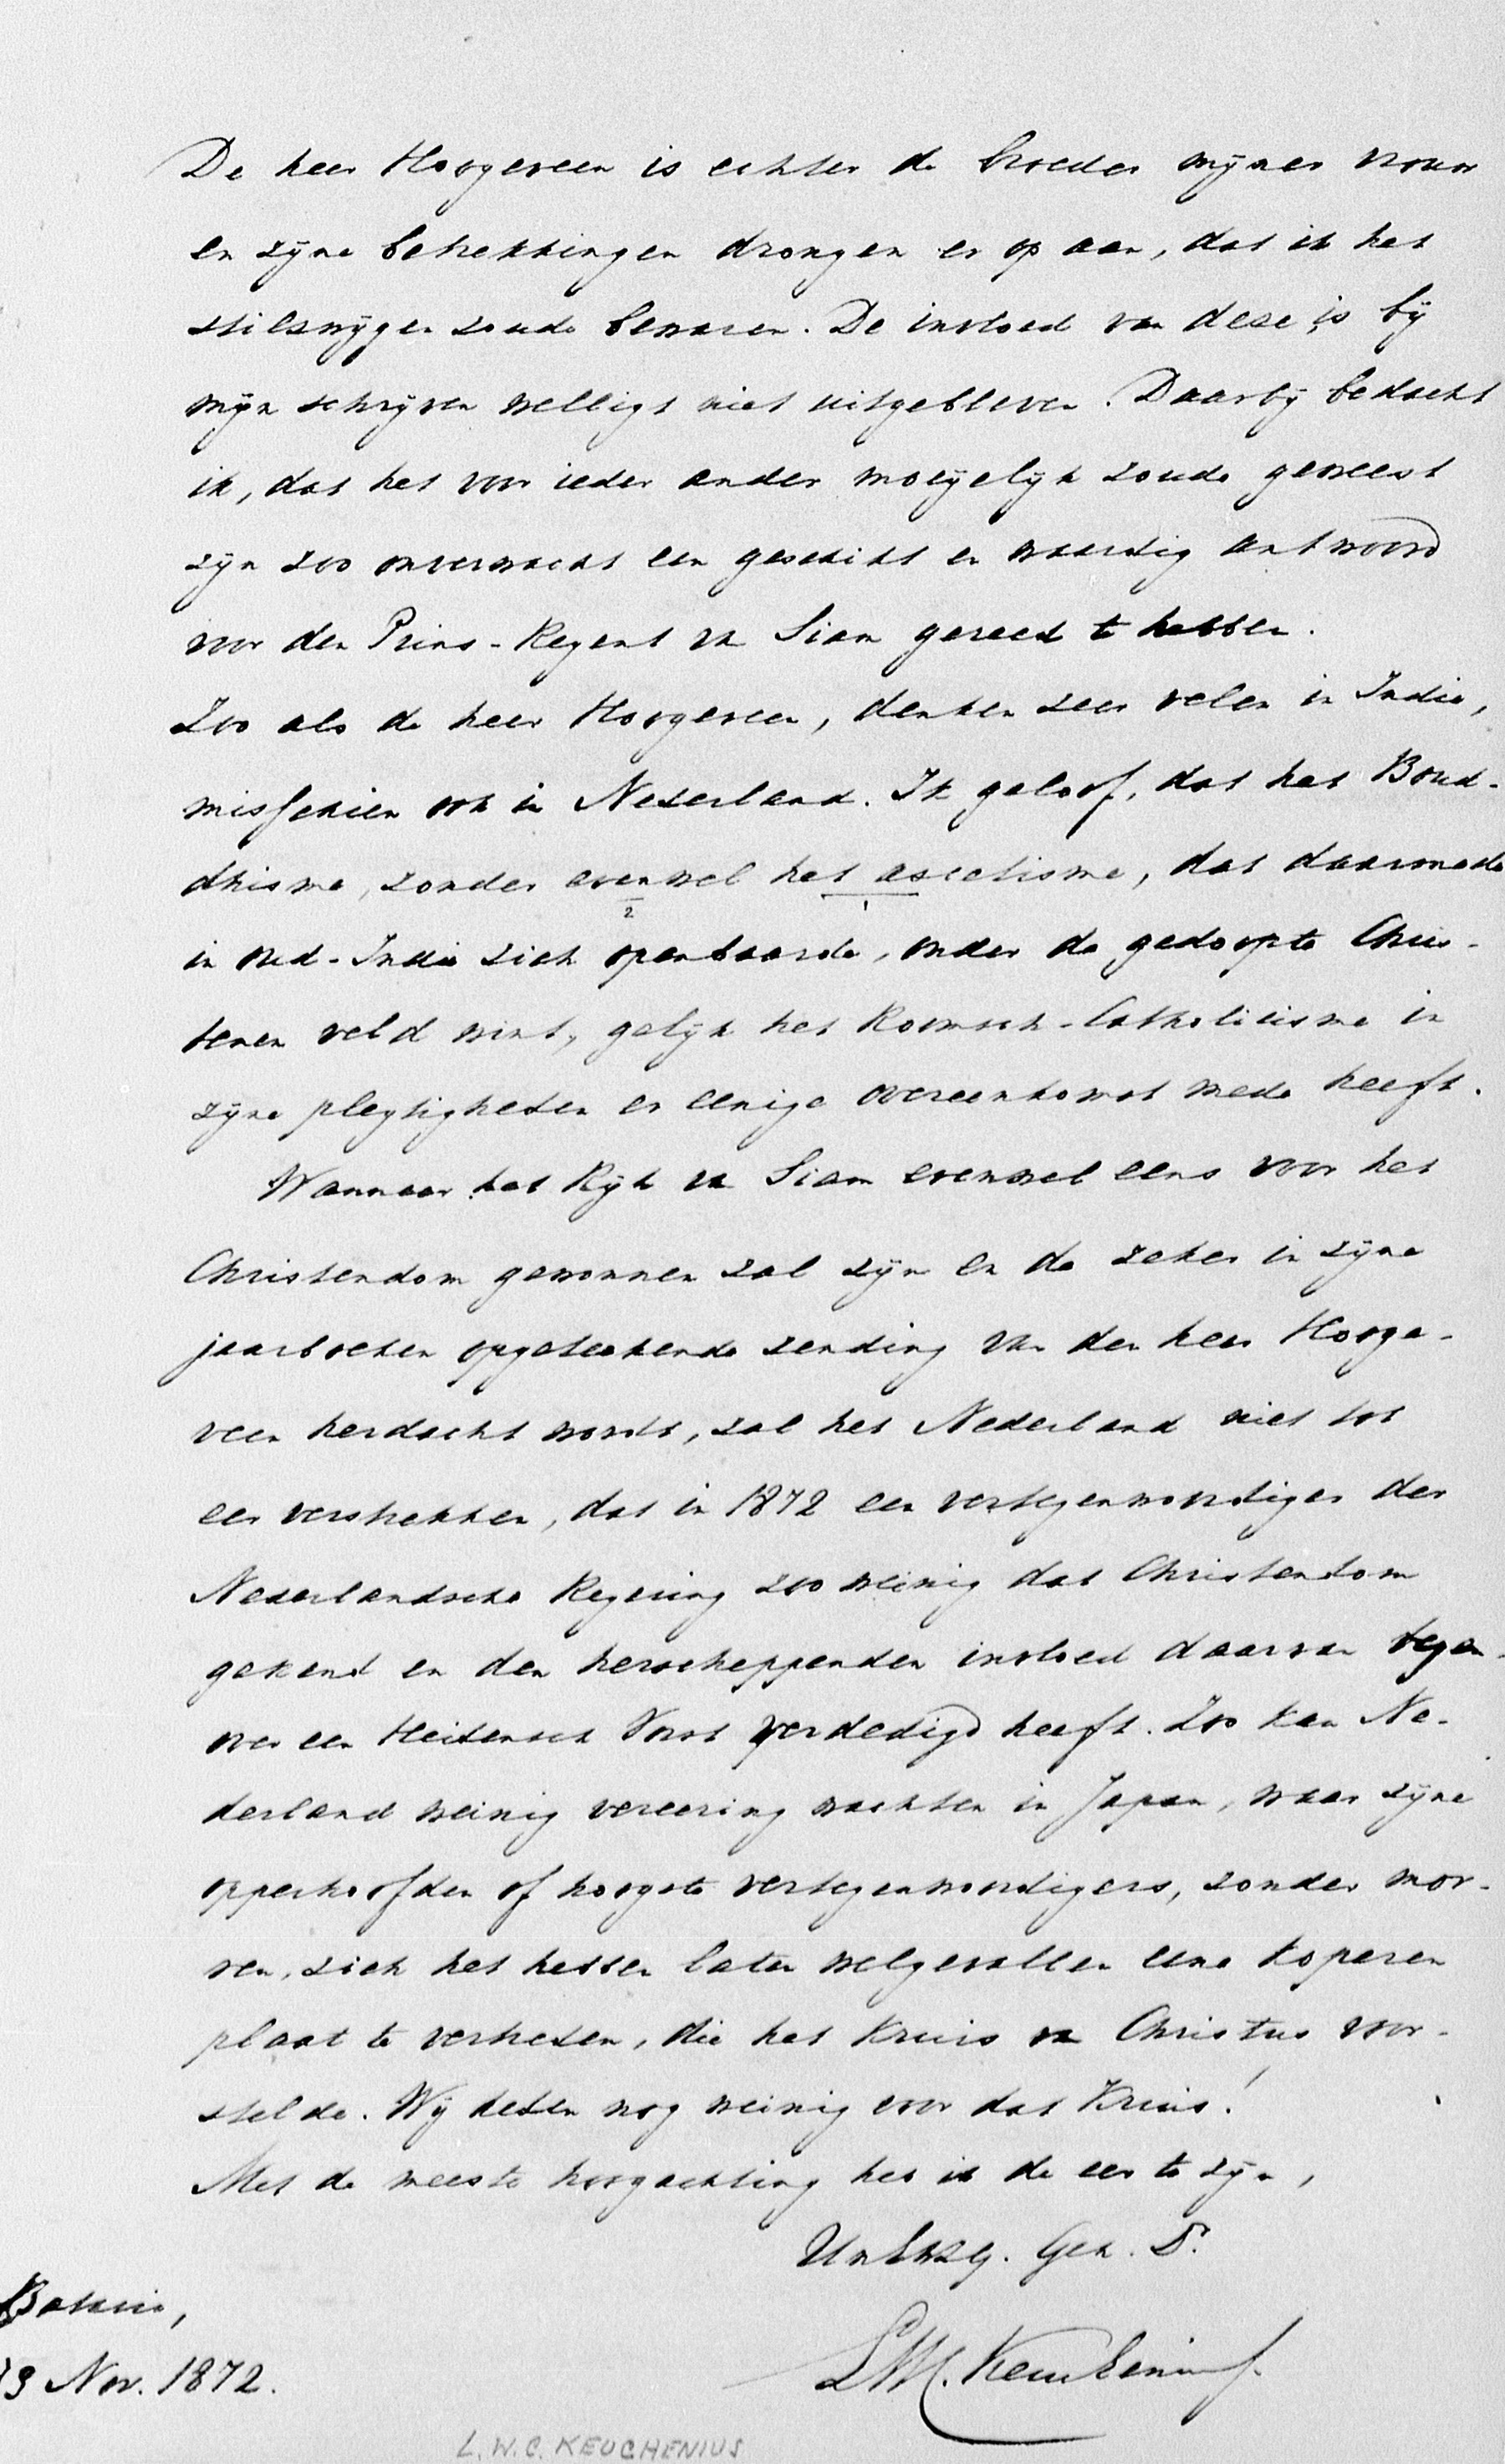 De heer Hoogeveen is echter de broeder mijner vrouw
en zijne betrekkingen drongen er op aan, dat ik het
stilzwijgen zoude bewaren. De invloed van deze is bij
mijn schrijven welligt niet uitgebleven. Daarbij bedacht
ik, dat het voor ieder ander moeijelijk zoude geweest
zijn zoo onverwacht een geschikt en waardig antwoord
voor den Prins-Regent van Siam gereed te hebben.
Zoo als de heer Hoogeveen, denken zeer velen in Indie,
misschien ook in Nederland. Ik geloof, dat het Boud-
dhisme, zonder evenwel het ascetisme, dat daarmede
2 1
in Ned-Indie zich openbaarde, onder de gedoopte Chris-
tenen veld wint, gelijk het Roomsch-Catholicisme in
zijne plegtigheden er eenige overeenkomst mede heeft.
Wanneer het Rijk van Siam evenwel eens voor het
Christendom gewonnen zal zijn en de zeker in zijne
jaarboeken opgeteekende zending van den heer Hooge-
veen herdacht wordt, zal het Nederland niet tot
eer verstrekken, dat in 1872 een vertegenwoordiger der
Nederlandsche Regering zoo weinig dat Christendom
gekend en den herscheppenden invloed daarvan tegen-
over een Heidensch Vorst verdedigd heeft. Zoo kan Ne-
derland weinig vereering wachten in Japan, waar zijne
opperhoofden of hoogste vertegenwoordigers, zonder mor-
ren, zich het hebben laten welgevallen eene koperen
plaat te vertreden, die het Kruis van Christus voor-
stelde. Wij deden nog weinig voor dat Kruis!
Met de meeste hoogachting heb ik de eer te zijn,
UwEdZg. Geh. D.
Batavia,
13 Nov. 1872.
LWC. Keuchenius
L.W.C. KEUCHENIUS